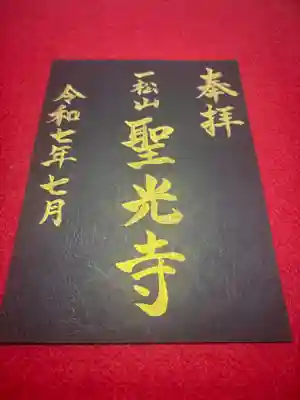 奉拝
一松山
聖光寺
令和七年七月